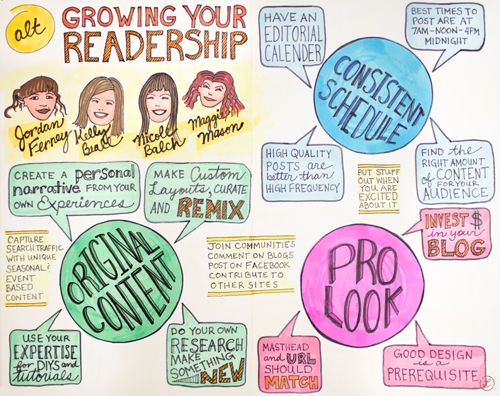 alt
GROWING YOUR
READERSHIP
Jordan
Ferney
Kelly
Nicole
Balch
Maggie
Mason
HAVE AN
EDITORIAL
CALENDER
BEST TIMES TO
POST ARE AT
7AM-NOON-4PM
MIDNIGHT
CONSISTENT
SCHEDULE
HIGH QUALITY
POSTS are
better than
HIGH FREQUENCY
PUT STUFF
OUT WHEN
YOU ARE
EXCITED
ABOUT IT
FIND the
RIGHT AMOUNT
of CONTENT
FOR YOUR
AUDIENCE
CREATE A personal
narrative FROM YOUR
OWN Experiences
MAKE Custom
Layouts, CURATE
AND REMIX
CAPTURE
SEARCH TRAFFIC
WITH UNIQUE
SEASONAL &
EVENT
BASED
CONTENT
ORIGINAL
CONTENT
JOIN COMMUNITIES
COMMENT ON BLOGS
POST ON FACEBOOK
CONTRIBUTE TO
OTHER SITES
USE YOUR
EXPERTISE
for DIYS and
tutorials
DO YOUR OWN
RESEARCH
MAKE
SOMETHING
NEW
PRO
LOOK
INVEST $
in your
BLOG
MASTHEAD
and URL
SHOULD
MATCH
GOOD DESIGN
is a
PREREQUISITE